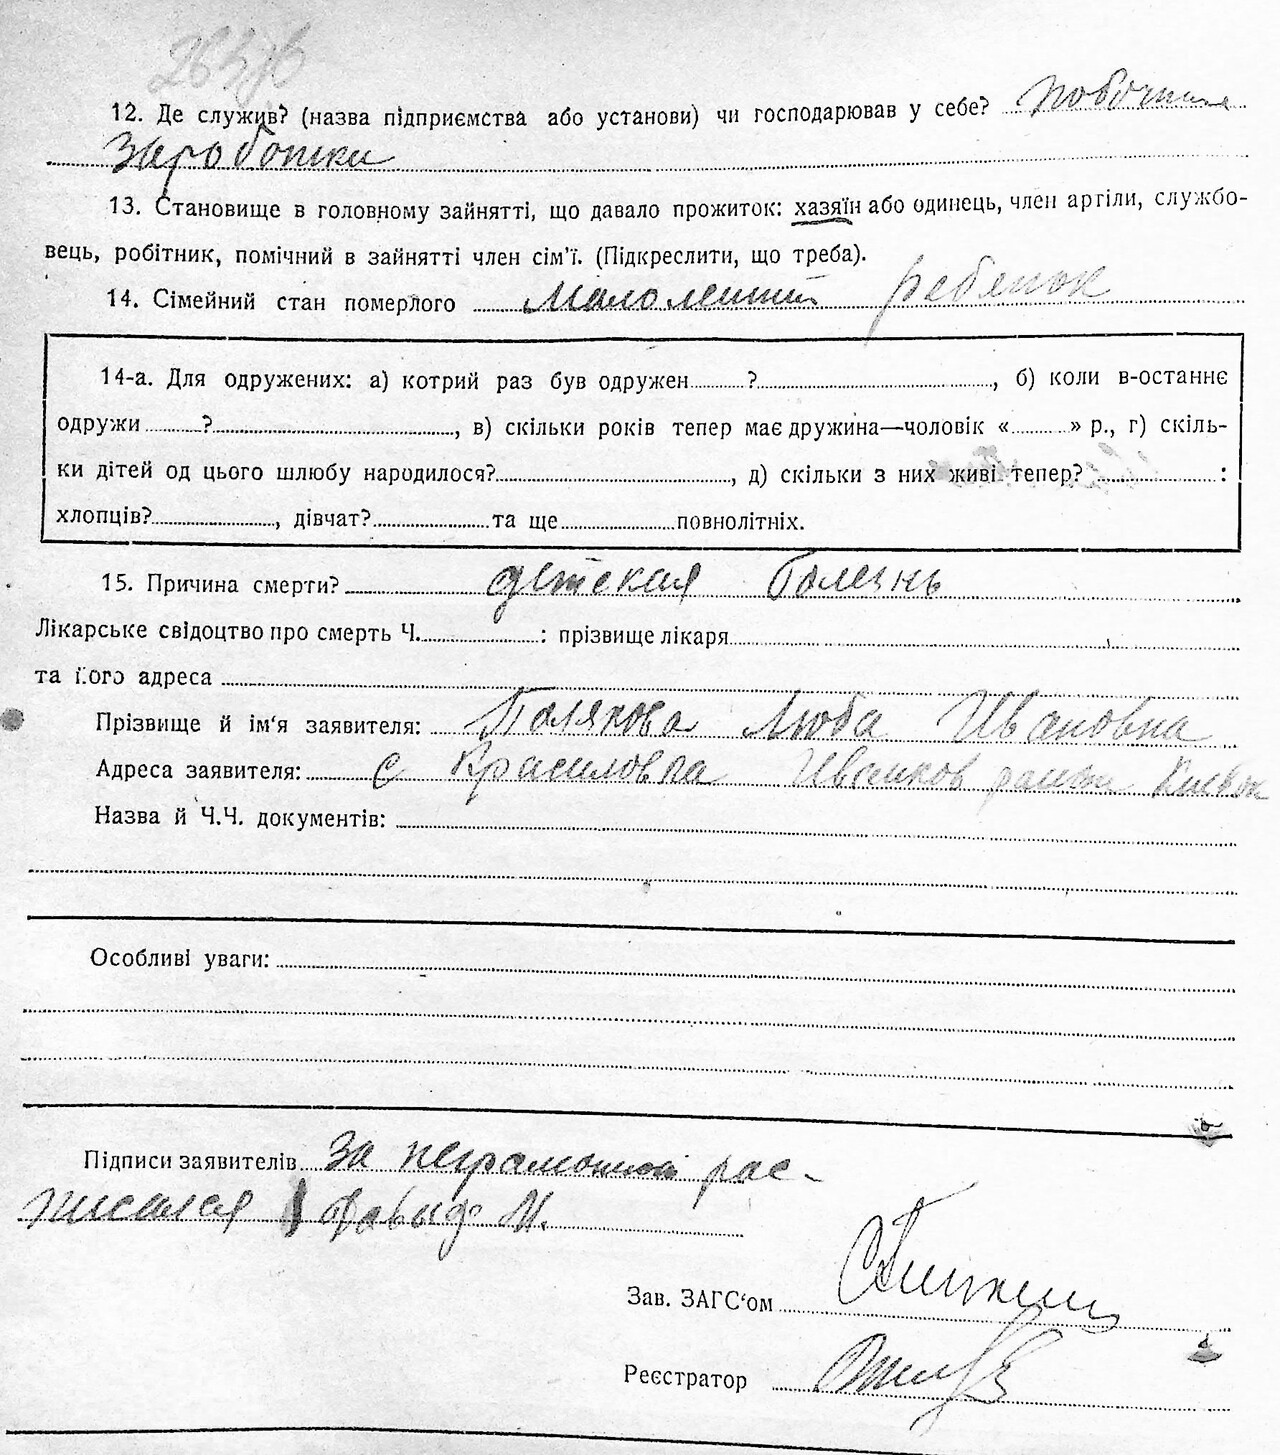 12. Де служив? (назва підприємства або установи) чи господарював у себе? побочные
заработки
13. Становище в головному зайнятті, що давало прожиток: хазяїн або одинець, член аргіли, службо-
вець, робітник, помічний в зайнятті член сім'ї. (Підкреслити, що треба).
14. Сімейний стан померлого малолетний ребенок
14-а. Для одружених: а) котрий раз був одружен ? , б) коли в-останнє
одружи ? , в) скільки років тепер має дружина—чоловік « » р., г) скіль-
ки дітей од цього шлюбу народилося? , д) скільки з них живі тепер? :
хлопців? , дівчат? та ще повнолітніх.
15. Причина смерти? детская болезнь
Лікарське свідоцтво про смерть Ч. : прізвище лікаря
та його адреса
Прізвище й ім'я заявителя: Полякова Люба Ивановна
Адреса заявителя: с Красиловка Иванков района Киевск
Назва й Ч.Ч. документів:
Особливі уваги:
Підписи заявителів За неграмотной рас-
писался Давыд М.
Зав. ЗАГС'ом
Реєстратор